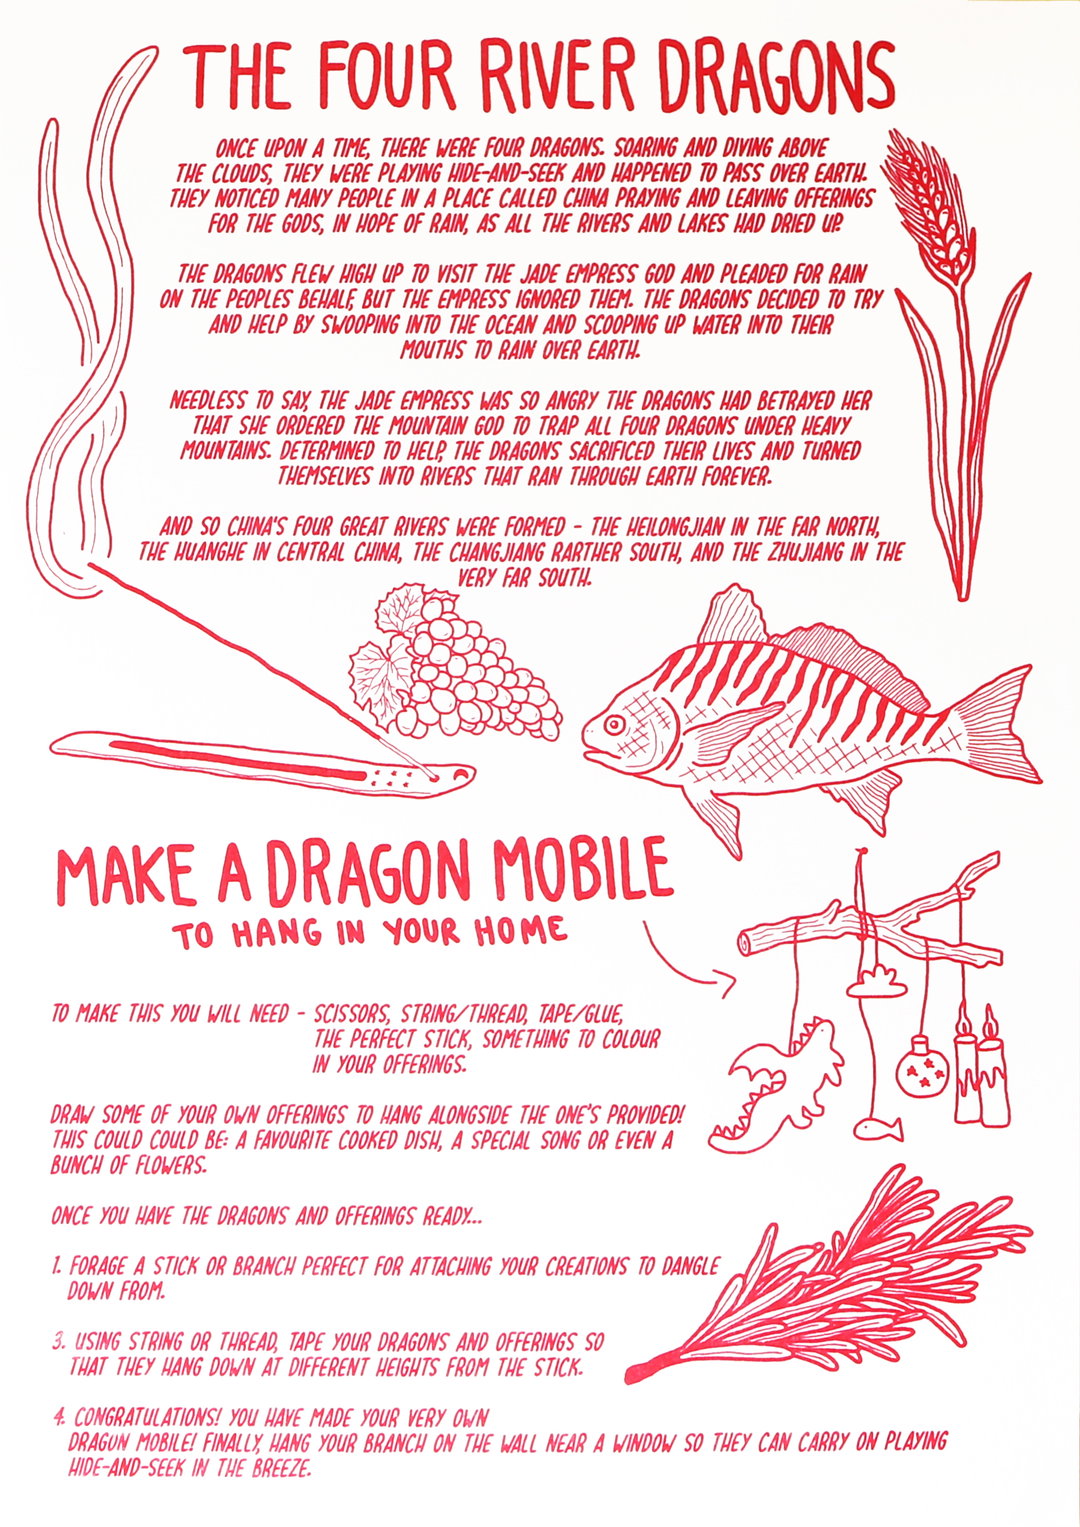 THE FOUR RIVER DRAGONS
ONCE UPON A TIME, THERE WERE FOUR DRAGONS. SOARING AND DIVING ABOVE
THE CLOUDS, THEY WERE PLAYING HIDE-AND-SEEK AND HAPPENED TO PASS OVER EARTH.
THEY NOTICED MANY PEOPLE IN A PLACE CALLED CHINA PRAYING AND LEAVING OFFERINGS
FOR THE GODS, IN HOPE OF RAIN, AS ALL THE RIVERS AND LAKES HAD DRIED UP.
THE DRAGONS FLEW HIGH UP TO VISIT THE JADE EMPRESS GOD AND PLEADED FOR RAIN
ON THE PEOPLES BEHALF, BUT THE EMPRESS IGNORED THEM. THE DRAGONS DECIDED TO TRY
AND HELP BY SWOOPING INTO THE OCEAN AND SCOOPING UP WATER INTO THEIR
MOUTHS TO RAIN OVER EARTH.
NEEDLESS TO SAY, THE JADE EMPRESS WAS SO ANGRY THE DRAGONS HAD BETRAYED HER
THAT SHE ORDERED THE MOUNTAIN GOD TO TRAP ALL FOUR DRAGONS UNDER HEAVY
MOUNTAINS. DETERMINED TO HELP, THE DRAGONS SACRIFICED THEIR LIVES AND TURNED
THEMSELVES INTO RIVERS THAT RAN THROUGH EARTH FOREVER.
AND SO CHINA'S FOUR GREAT RIVERS WERE FORMED - THE HEILONGJIAN IN THE FAR NORTH,
THE HUANGHE IN CENTRAL CHINA, THE CHANGJIANG RARTHER SOUTH, AND THE ZHUJIANG IN THE
VERY FAR SOUTH.
MAKE A DRAGON MOBILE
TO HANG IN YOUR HOME
TO MAKE THIS YOU WILL NEED - SCISSORS, STRING/THREAD, TAPE/GLUE,
THE PERFECT STICK, SOMETHING TO COLOUR
IN YOUR OFFERINGS.
DRAW SOME OF YOUR OWN OFFERINGS TO HANG ALONGSIDE THE ONE'S PROVIDED!
THIS COULD COULD BE: A FAVOURITE COOKED DISH, A SPECIAL SONG OR EVEN A
BUNCH OF FLOWERS.
ONCE YOU HAVE THE DRAGONS AND OFFERINGS READY...
1. FORAGE A STICK OR BRANCH PERFECT FOR ATTACHING YOUR CREATIONS TO DANGLE
DOWN FROM.
3. USING STRING OR THREAD, TAPE YOUR DRAGONS AND OFFERINGS SO
THAT THEY HANG DOWN AT DIFFERENT HEIGHTS FROM THE STICK.
4. CONGRATULATIONS! YOU HAVE MADE YOUR VERY OWN
DRAGON MOBILE! FINALLY, HANG YOUR BRANCH ON THE WALL NEAR A WINDOW SO THEY CAN CARRY ON PLAYING
HIDE-AND-SEEK IN THE BREEZE.